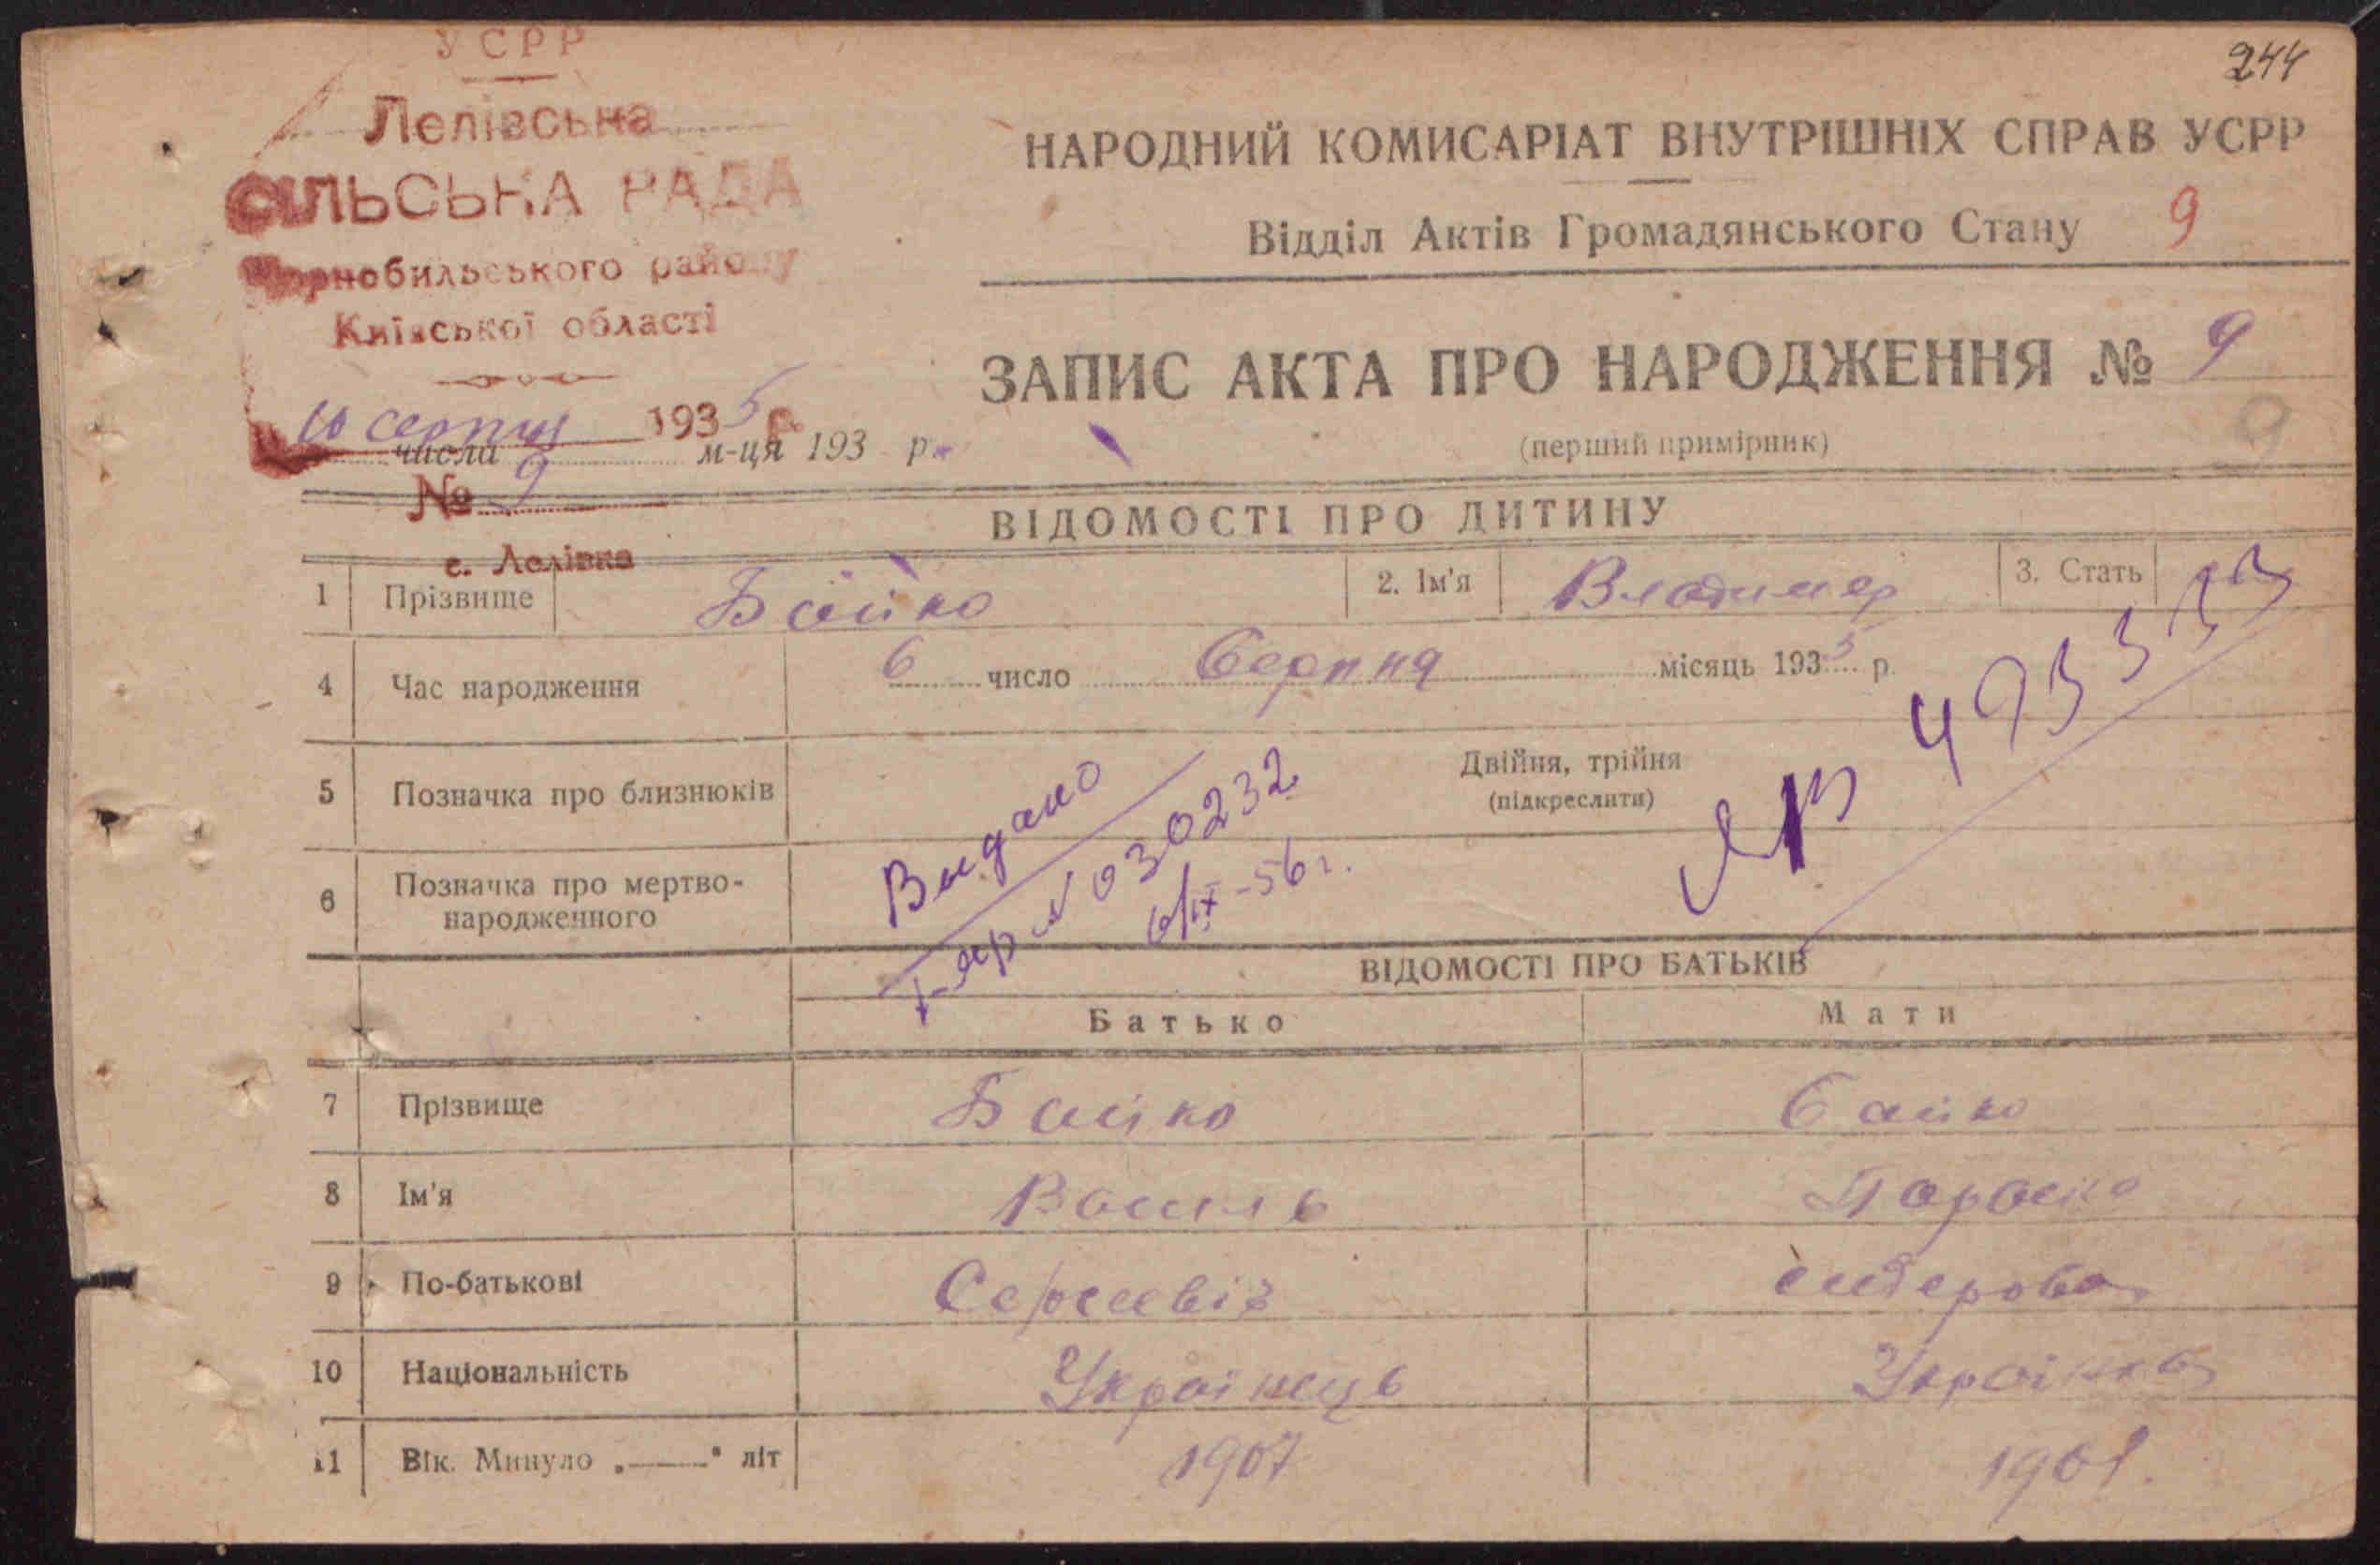 244
УСРР
Лелівська
СІЛЬСЬКА РАДА
Чорнобильського району
Київської області
10 серпня 1935 р.
числа м-ця 193 р.
№ 9
с. Лелівка
НАРОДНИЙ КОМИСАРІАТ ВНУТРІШНІХ СПРАВ УСРР
Відділ Актів Громадянського Стану 9
ЗАПИС АКТА ПРО НАРОДЖЕННЯ № 9
(перший примірник) 9
ВІДОМОСТІ ПРО ДИТИНУ
1 Прізвище Бойко 2. Ім'я Владимер 3. Стать
4 Час народження 6 число Серпня місяць 1935 р.
5 Позначка про близнюків Двійня, трійня
(підкреслити)
6 Позначка про мертво-
народженного
Выдано
030232
6/IX-56 г.
ВІДОМОСТІ ПРО БАТЬКІВ
Батько Мати
7 Прізвище Бойко Бойко
8 Ім'я Василь Параска
9 По-батькові Сергеевіч
10 Національність Українець Українка
11 Вік. Минуло „——" літ 1907 1901.